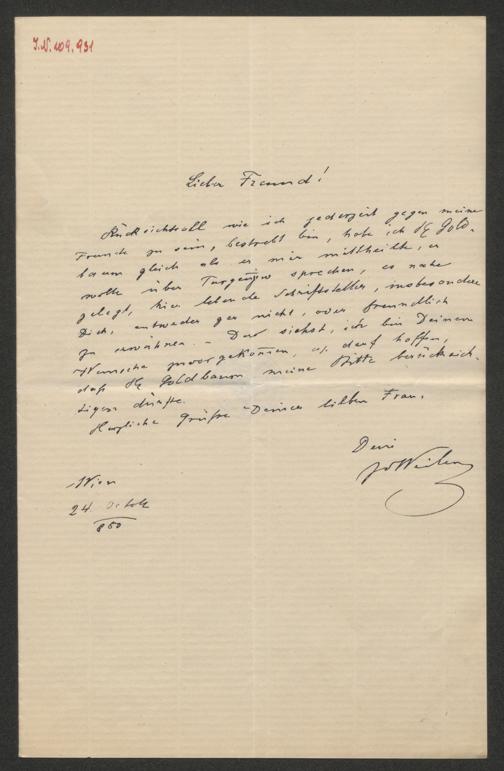 J.N. 109.931
Lieber Freund!
Rücksichtsvoll wie ich jederzeit gegen meine
Freunde zu sein, bestrebt bin, habe ich H Gold-
baum gleich als er mir mittheilte, er
wolle über Turgenjew sprechen, es nahe
gelegt, hier lebende Schriftsteller, insbesondere
Dich, entweder gar nicht, oder freundlich
zu erwähnen. – Du siehst, ich bin Deinem
Wunsche zuvorgekommen, u. darf hoffen,
daß H Goldbaum meine Bitte berücksich-
tigen dürfte.
Herzliche Grüße Deiner lieben Frau.
Dein
JvWeilen
Wien
24. Octob